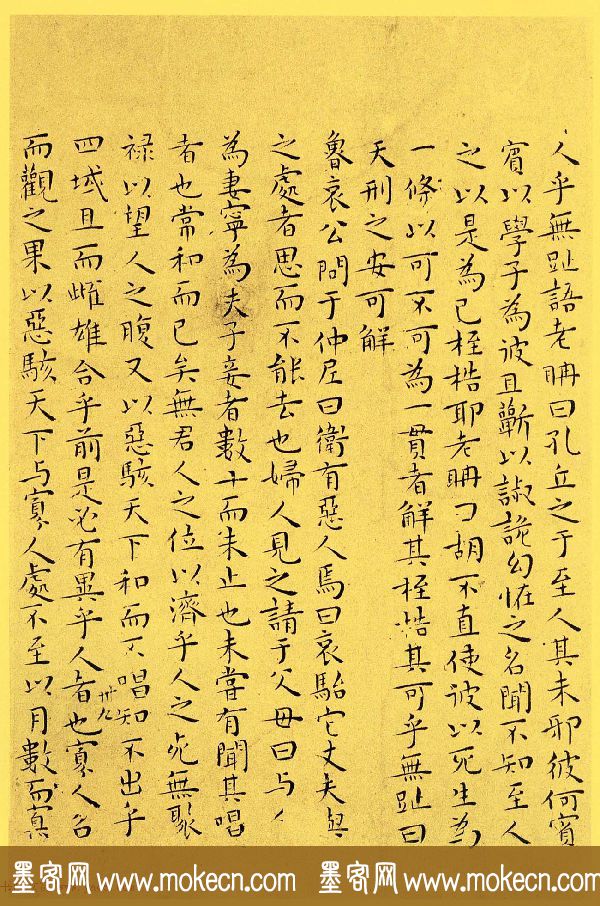 人乎無趾語老聃曰孔丘之于至人其未邪彼何賓
賓以學子為彼且蘄以諔詭幻恠之名聞不知至人
之以是為己桎梏耶老聃曰胡不直使彼以死生為
一條以可不可為一貫者解其桎梏其可乎無趾曰
天刑之安可解
魯哀公問于仲尼曰衛有惡人焉曰哀駘它丈夫與
之處者思而不能去也婦人見之請于父母曰与人
為妻寧為夫子妾者數十而未止也未嘗有聞其唱
者也常和而已矣無君人之位以濟乎人之死無聚
禄以望人之腹又以惡駭天下和而不唱知不出乎
四域且而雌雄合乎前是必有異乎人者也寡人召
而觀之果以惡駭天下与寡人處不至以月數而寡
墨客网 www.mokecn.com 墨客网 www.mokecn.com